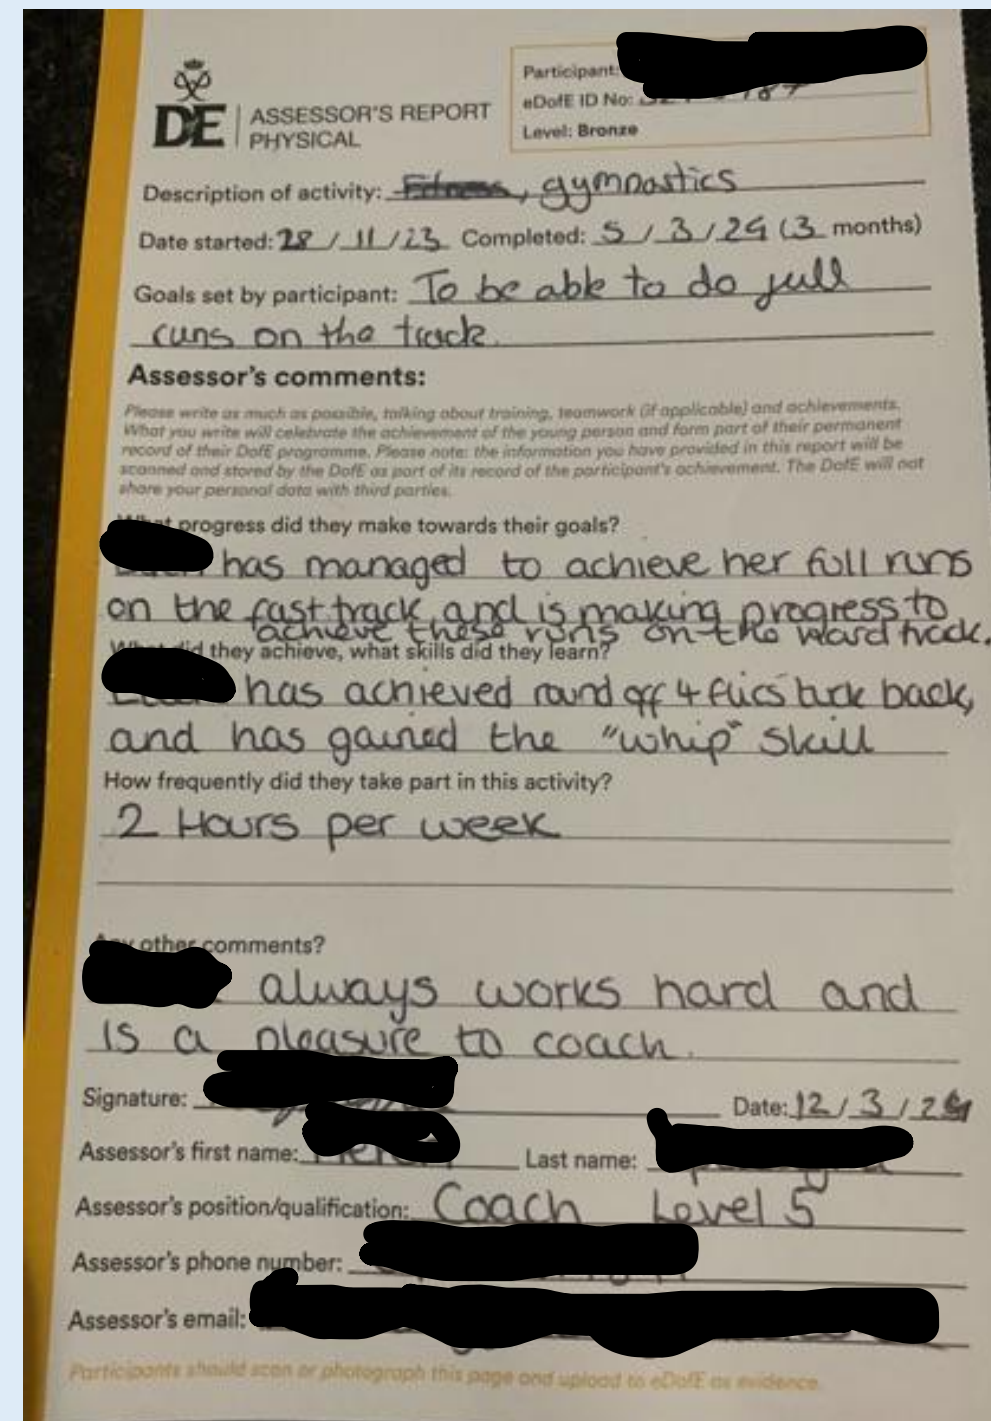 DE ASSESSOR'S REPORT
PHYSICAL
Participant:
eDofE ID No:
Level: Bronze
Description of activity: Fitness, gymnastics
Date started: 28/11/23 Completed: 5/3/24 (3 months)
Goals set by participant: To be able to do full
runs on the track.
Assessor's comments:
Please write as much as possible, talking about training, teamwork (if applicable) and achievements.
What you write will celebrate the achievement of the young person and form part of their permanent
record of their DofE programme. Please note: the information you have provided in this report will be
scanned and stored by the DofE as part of its record of the participant's achievement. The DofE will not
share your personal data with third parties.
What progress did they make towards their goals?
has managed to achieve her full runs
on the fast track, and is making progress to
achieve these runs on the hard track.
What did they achieve, what skills did they learn?
has achieved round off 4 flics tuck back,
and has gained the "whip" skill
How frequently did they take part in this activity?
2 Hours per week
Any other comments?
always works hard and
is a pleasure to coach.
Signature: Date: 12/3/24
Assessor's first name: Last name:
Assessor's position/qualification: Coach Level 5
Assessor's phone number:
Assessor's email:
Participants should scan or photograph this page and upload to eDofE as evidence.